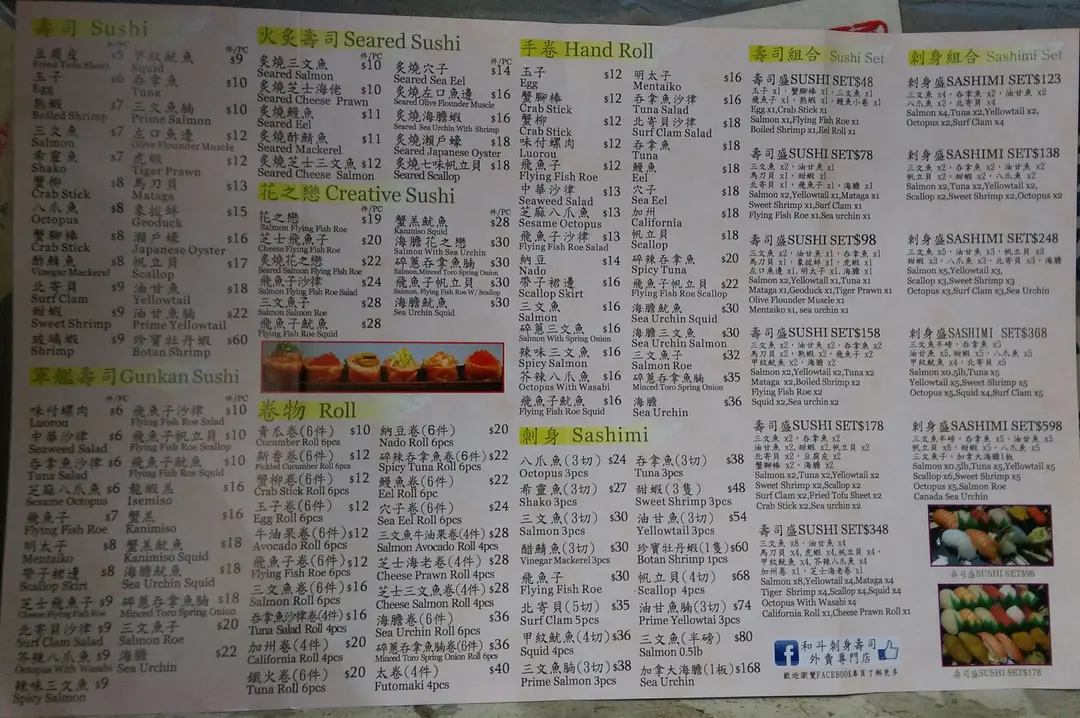 壽司 Sushi
件/PC
豆腐皮 $5
Fried Tofu Sheet
玉子 $6
Egg
熟蝦 $7
Boiled Shrimp
三文魚 $7
Salmon
希靈魚 $7
Shako
蟹柳 $8
Crab Stick
八爪魚 $8
Octopus
蟹腳棒 $8
Crab Stick
醋鯖魚 $8
Vinegar Mackerel
北寄貝 $9
Surf Clam
甜蝦 $9
Sweet Shrimp
玻璃蝦 $9
Shrimp
件/PC
甲紋魷魚 $9
Squid
吞拿魚 $10
Tuna
三文魚腩 $10
Prime Salmon
左口魚邊 $12
Olive Flounder Muscle
虎蝦 $12
Tiger Prawn
馬刀貝 $13
Mataga
象拔蚌 $15
Geoduck
瀨戶蠔 $16
Japanese Oyster
帆立貝 $17
Scallop
油甘魚 $18
Yellowtail
油甘魚腩 $22
Prime Yellowtail
珍寶牡丹蝦 $60
Botan Shrimp
軍艦壽司 Gunkan Sushi
件/PC
味付螺肉 $6
Luorou
中華沙律 $6
Seaweed Salad
吞拿魚沙律 $6
Tuna Salad
芝麻八爪魚 $6
Sesame Octopus
飛魚子 $7
Flying Fish Roe
明太子 $8
Mentaiko
帶子裙邊 $8
Scallop Skirt
芝士飛魚子 $9
Cheese Flying Fish Roe
北寄貝沙律 $9
Surf Clam Salad
芥辣八爪魚 $9
Octopus With Wasabi
辣味三文魚 $9
Spicy Salmon
件/PC
飛魚子沙律 $10
Flying Fish Roe Salad
飛魚子帆立貝 $10
Flying Fish Roe Scallop
飛魚子魷魚 $10
Flying Fish Roe Squid
龍蝦羔 $16
Isemiso
蟹羔 $16
Kanimiso
蟹羔魷魚 $18
Kanimiso Squid
海膽魷魚 $18
Sea Urchin Squid
碎蔥吞拿魚腩 $18
Minced Toro Spring Onion
三文魚子 $20
Salmon Roe
海膽 $22
Sea Urchin
火炙壽司 Seared Sushi
件/PC
炙燒三文魚 $10
Seared Salmon
炙燒芝士海佬 $10
Seared Cheese Prawn
炙燒鰻魚 $11
Seared Eel
炙燒醋鯖魚 $11
Seared Mackerel
炙燒芝士三文魚 $12
Seared Cheese Salmon
件/PC
炙燒穴子 $14
Seared Sea Eel
炙燒左口魚邊 $16
Seared Olive Flounder Muscle
炙燒海膽蝦 $16
Seared Sea Urchin With Shrimp
炙燒瀨戶蠔 $18
Seared Japanese Oyster
炙燒七味帆立貝 $18
Seared Scallop
花之戀 Creative Sushi
件/PC
花之戀 $19
Salmon Flying Fish Roe
芝士飛魚子 $20
Cheese Flying Fish Roe
炙燒花之戀 $22
Seared Salmon Flying Fish Roe
飛魚子沙律 $24
Salmon Flying Fish Roe Salad
三文魚子 $28
Salmon Salmon Roe
飛魚子魷魚 $28
Flying Fish Roe Squid
件/PC
蟹羔魷魚 $28
Kanmiso Squid
海膽花之戀 $30
Salmon With Sea Urchin
碎蔥吞吞魚腩 $30
Salmon,Minced Toro Spring Onion
飛魚子帆立貝 $30
Salmon, Flying Fish Roe W/ Scallop
海膽魷魚 $30
Sea Urchin Squid
卷物 Roll
青瓜卷(6件) $10
Cucumber Roll 6pcs
新香卷(6件) $12
Pickled Cucumber Roll 6pcs
蟹柳卷(6件) $12
Crab Stick Roll 6pcs
玉子卷(6件) $12
Egg Roll 6pcs
牛油果卷(6件) $12
Avocado Roll 6pcs
飛魚子卷(6件) $12
Flying Fish Roe 6pcs
三文魚卷(6件) $16
Salmon Roll 6pcs
吞拿魚沙律卷(4件) $16
Tuna Salad Roll 4pcs
加州卷(4件) $20
California Roll 4pcs
鐵火卷(6件) $20
Tuna Roll 6pcs
納豆卷(6件) $20
Nado Roll 6pcs
碎辣吞拿魚卷(6件) $22
Spicy Tuna Roll 6pcs
鰻魚卷(6件) $22
Eel Roll 6pc
穴子卷(6件) $24
Sea Eel Roll 6pcs
三文魚牛油果卷(4件) $28
Salmon Avocado Roll 4pcs
芝士海老卷(4件) $28
Cheese Prawn Roll 4pcs
芝士三文魚卷(4件) $28
Cheese Salmon Roll 4pcs
海膽卷(6件) $36
Sea Urchin Roll 6pcs
碎蔥吞拿魚腩卷(6件) $36
Minced Toro Spring Onion Roll 6pcs
太卷(4件) $40
Futomaki 4pcs
手卷 Hand Roll
玉子 $12
Egg
蟹腳棒 $12
Crab Stick
蟹柳 $12
Crab Stick
味付螺肉 $12
Luorou
飛魚子 $12
Flying Fish Roe
中華沙律 $13
Seaweed Salad
芝麻八爪魚 $13
Sesame Octopus
飛魚子沙律 $13
Flying Fish Roe Salad
納豆 $14
Nado
帶子裙邊 $16
Scallop Skirt
三文魚 $16
Salmon
碎蔥三文魚 $16
Salmon With Spring Onion
辣味三文魚 $16
Spicy Salmon
芥辣八爪魚 $16
Octopus With Wasabi
飛魚子魷魚 $16
Flying Fish Roe Squid
明太子 $16
Mentaiko
吞拿魚沙律 $16
Tuna Salad
北寄貝沙律 $16
Surf Clam Salad
吞拿魚 $18
Tuna
鰻魚 $18
Eel
穴子 $18
Sea Eel
加州 $18
California
帆立貝 $18
Scallop
碎辣吞拿魚 $20
Spicy Tuna
飛魚子帆立貝 $22
Flying Fish Roe Scallop
海膽魷魚 $30
Sea Urchin Squid
海膽三文魚 $30
Sea Urchin Salmon
三文魚子 $32
Salmon Roe
碎蔥吞拿魚腩 $35
Minced Toro Spring Onion
海膽 $36
Sea Urchin
刺身 Sashimi
八爪魚(3切) $24
Octopus 3pcs
希靈魚(3切) $27
Shako 3pcs
三文魚(3切) $30
Salmon 3pcs
醋鯖魚(3切) $30
Vinegar Mackerel 3pcs
飛魚子 $30
Flying Fish Roe
北寄貝(5切) $35
Surf Clam 5pcs
甲紋魷魚(4切) $36
Squid 4pcs
三文魚腩(3切) $38
Prime Salmon 3pcs
吞拿魚(3切) $38
Tuna 3pcs
甜蝦(3隻) $48
Sweet Shrimp 3pcs
油甘魚(3切) $54
Yellowtail 3pcs
珍寶牡丹蝦(1隻) $60
Botan Shrimp 1pcs
帆立貝(4切) $68
Scallop 4pcs
油甘魚腩(3切) $74
Prime Yellowtai 3pcs
三文魚(半磅) $80
Salmon 0.5lb
加拿大海膽(1板) $168
Sea Urchin
壽司組合 Sushi Set
壽司盛SUSHI SET$48
玉子 x1，蟹腳棒 x1，三文魚 x1
飛魚子 x1，熟蝦 x1，鰻魚小卷 x1
Egg x1,Crab Stick x1
Salmon x1,Flying Fish Roe x1
Boiled Shrimp x1,Eel Roll x1
壽司盛SUSHI SET$78
三文魚 x2，油甘魚 x1
馬刀貝 x1，甜蝦 x1
北寄貝 x1，飛魚子 x1，海膽 x1
Salmon x2,Yellowtail x1,Mataga x1
Sweet Shrimp x1,Surf Clam x1
Flying Fish Roe x1.Sea urchin x1
壽司盛SUSHI SET$98
三文魚 x2，油甘魚 x1，吞拿魚 x1
馬刀貝 x1，象拔蚌 x1，虎蝦 x1
左口魚邊 x1，明太子 x1，海膽 x1
Salmon x2,Yellowtail x1,Tuna x1
Mataga x1,Geoduck x1,Tiger Prawn x1
Olive Flounder Muscle x1
Mentaiko x1, sea urchin x1
壽司盛SUSHI SET$158
三文魚 x2，油甘魚 x2，吞拿魚 x2
馬刀貝 x2，熟蝦 x2，飛魚子 x2
甲紋魷魚 x2，海膽 x2
Salmon x2,Yellowtail x2,Tuna x2
Mataga x2,Boiled Shrimp x2
Flying Fish Roe x2
Squid x2,Sea urchin x2
壽司盛SUSHI SET$178
三文魚 x2，吞拿魚 x2
油甘魚 x2，甜蝦 x2，帆立貝 x2
北寄貝 x2，豆腐皮 x2
蟹腳棒 x2，海膽 x2
Salmon x2,Tuna x2,Yellowtail x2
Sweet Shrimp x2,Scallop x2
Surf Clam x2,Fried Tofu Sheet x2
Crab Stick x2,Sea urchin x2
壽司盛SUSHI SET$348
三文魚 x8，油甘魚 x4
馬刀貝 x4，虎蝦 x4，帆立貝 x4，
甲紋魷魚 x4，芥辣八爪魚 x4
加州卷 x1，芝士海老卷 x1
Salmon x8,Yellowtail x4,Mataga x4
Tiger Shrimp x4,Scallop x4,Squid x4
Octopus With Wasabi x4
California Roll x1,Cheese Prawn Roll x1
和斗刺身壽司
外賣專門店
歡迎瀏覽FACEBOOK專頁了解更多
刺身組合 Sashimi Set
刺身盛SASHIMI SET$123
三文魚 x4，吞拿魚 x2，油甘魚 x2
八爪魚 x2，北寄貝 x4
Salmon x4,Tuna x2,Yellowtail x2,
Octopus x2,Surf Clam x4
刺身盛SASHIMI SET$138
三文魚 x2，吞拿魚 x2，油甘魚 x2
帆立貝 x2，甜蝦 x2，八爪魚 x2
Salmon x2,Tuna x2,Yellowtail x2,
Scallop x2,Sweet Shrimp x2,Octopus x2
刺身盛SASHIMI SET$248
三文魚 x5，油甘魚 x3，帆立貝 x3
甜蝦 x3，八爪魚 x3，北寄貝 x3，海膽
Salmon x5,Yellowtail x3,
Scallop x3,Sweet Shrimp x3
Octopus x3,Surf Clam x3,Sea Urchin
刺身盛SASHIMI SET$368
三文魚半磅，吞拿魚 x5
油甘魚 x5，甜蝦 x5，八爪魚 x5
甲紋魷魚 x4，北寄貝 x5
Salmon x0.5lb,Tuna x5
Yellowtail x5,Sweet Shrimp x5
Octopus x5,Squid x4,Surf Clam x5
刺身盛SASHIMI SET$598
三文魚半磅，吞拿魚 x5，油甘魚 x5
帆立貝 x6，甜蝦 x5，八爪魚 x5
三文魚子，加拿大海膽1板
Salmon x0.5lb,Tuna x5,Yellowtail x5
Scallop x6,Sweet Shrimp x5
Octopus x5,Salmon Roe
Canada Sea Urchin
壽司盛SUSHI SET$98
壽司盛SUSHI SET$178